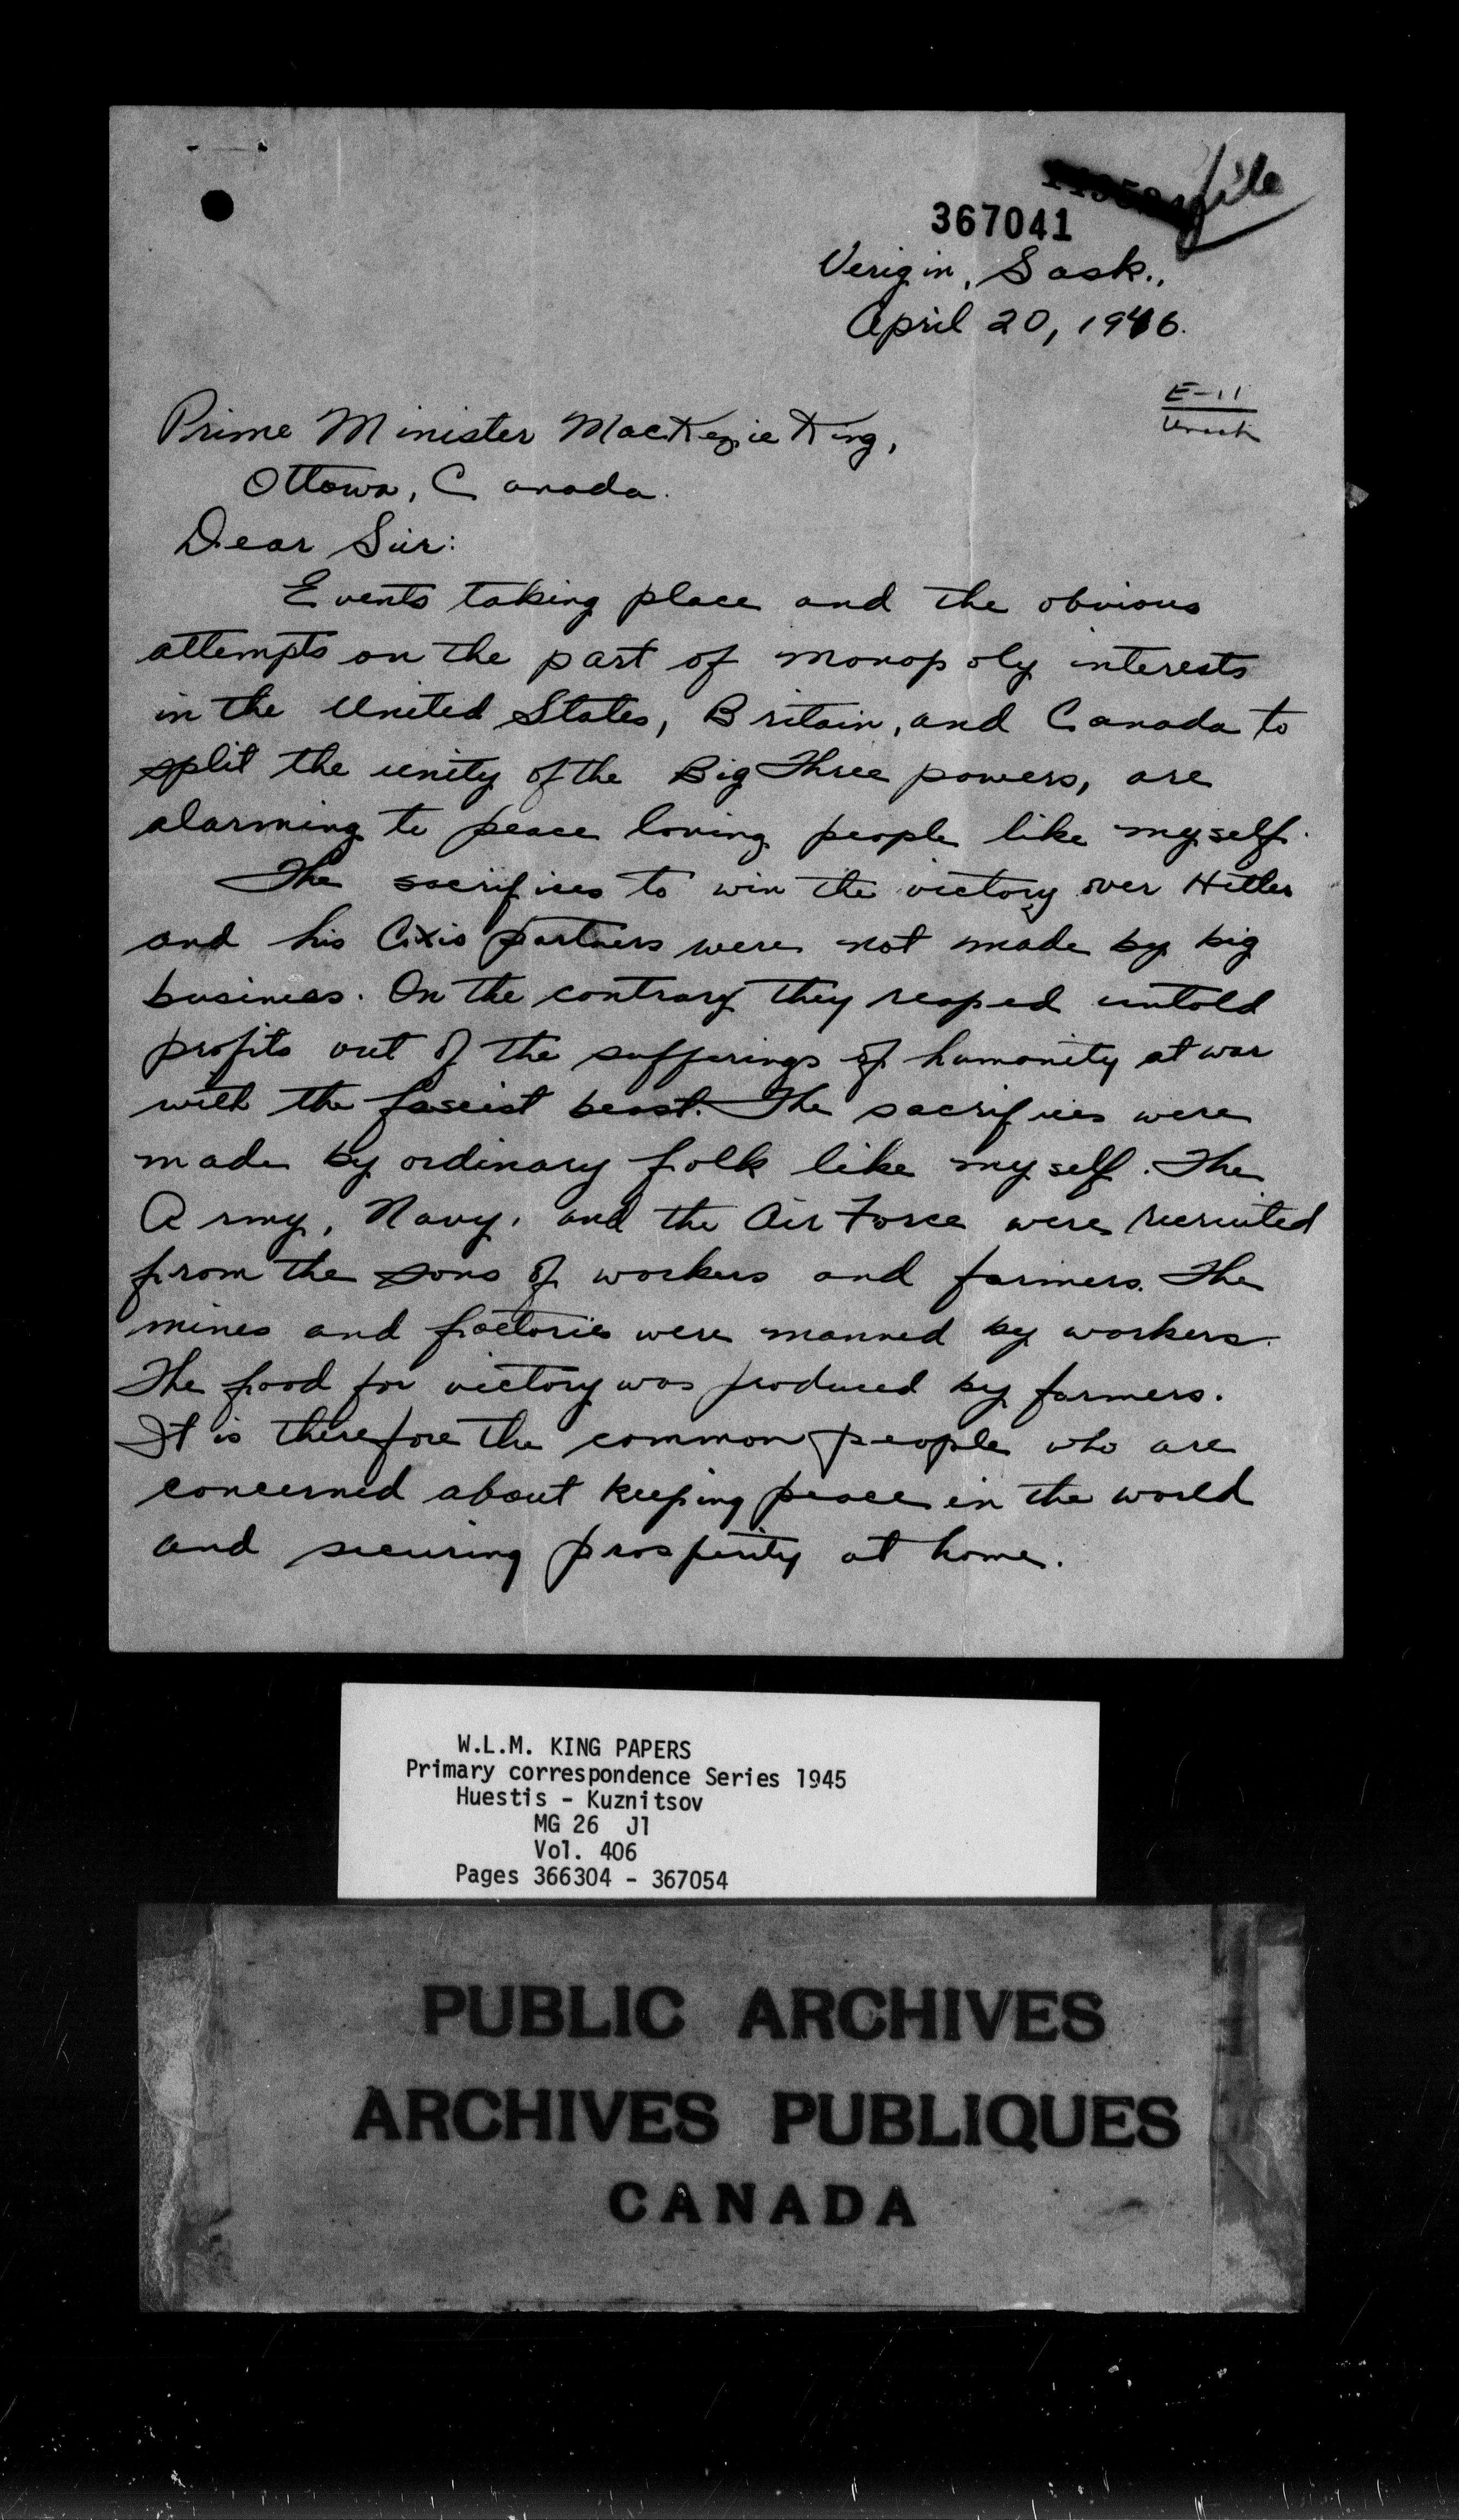 file
367041
Verigin, Sask.,
April 20, 1946.
E-11
Prime Minister MacKezie King,
Ottowa, Canada.
Dear Sir:
Events taking place and the obvious
attempts on the part of monopoly interests
in the United States, Britain, and Canada to
split the unity of the Big Three powers, are
alarming to peace loving people like myself.
The sacrifices to win the victory over Hitler
and his Axis partners were not made by big
business. On the contrary they reaped untold
profits out of the sufferings of humanity at war
with the fascist beast. The sacrifices were
made by ordinary folk like myself. The
Army, Navy, and the Air Force were recruited
from the sons of workers and farmers. The
mines and factories were manned by workers.
The food for victory was produced by farmers.
It is therefore the common people who are
concerned about keeping peace in the world
and securing prosperity at home.
W.L.M. KING PAPERS
Primary correspondence Series 1945
Huestis - Kuznitsov
MG 26 J1
Vol. 406
Pages 366304 - 367054
PUBLIC ARCHIVES
ARCHIVES PUBLIQUES
CANADA